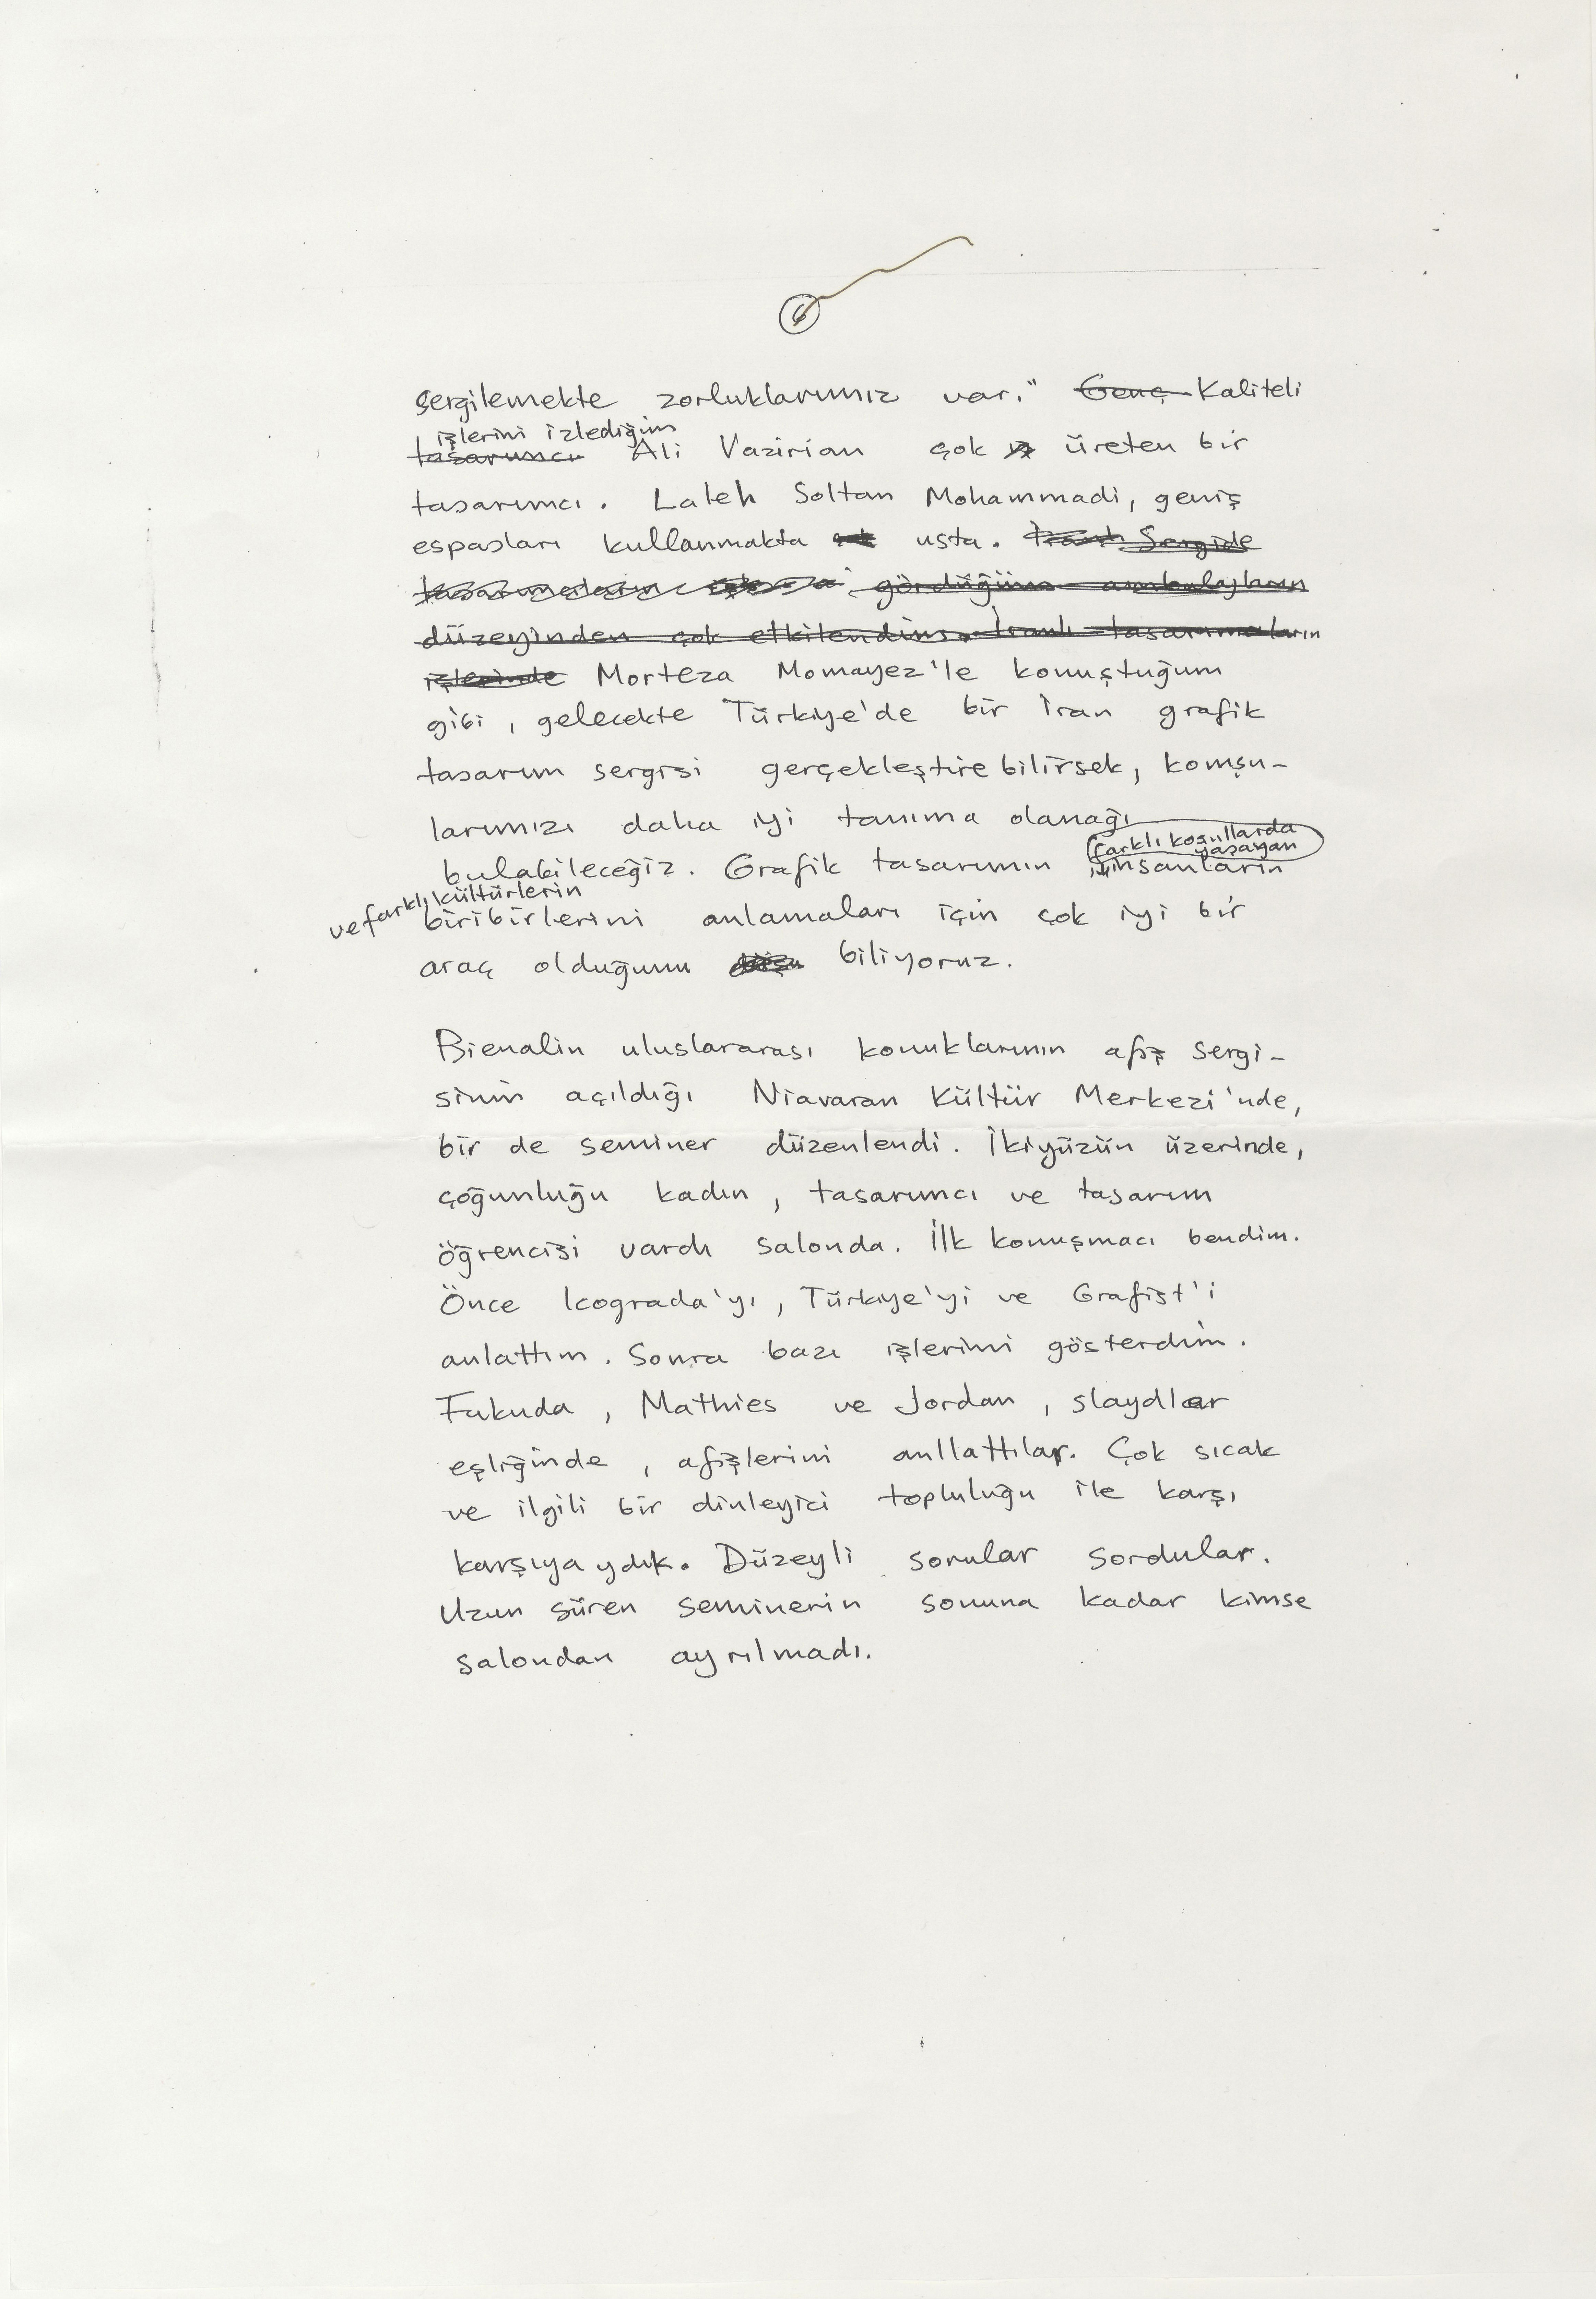 6
sergilemekte zorluklarımız var." Genç Kaliteli
işlerini izlediğim
tasarımcı Ali Vazirian çok üreten bir
tasarımcı. Laleh Soltan Mohammadi, geniş
espasları kullanmakta usta. Sergide
tasarımcıların gördüğüm ambalajların
düzeyinden çok etkilendim. İranlı tasarımcıların
işlerinde Morteza Momayez'le konuştuğum
gibi, gelecekte Türkiye'de bir İran grafik
tasarım sergisi gerçekleştirebilirsek, komşu-
larımızı daha iyi tanıma olanağı
farklı koşullarda
yaşayan
bulabileceğiz. Grafik tasarımın insanların
ve farklı kültürlerin
biribirlerini anlamaları için çok iyi bir
araç olduğunu biliyoruz.
Bienalin uluslararası konuklarının afiş sergi-
sinin açıldığı Niavaran Kültür Merkezi'nde,
bir de seminer düzenlendi. İkiyüzün üzerinde,
çoğunluğu kadın, tasarımcı ve tasarım
öğrencisi vardı salonda. İlk konuşmacı bendim.
Önce Icograda'yı, Türkiye'yi ve Grafist'i
anlattım. Sonra bazı işlerimi gösterdim.
Fukuda, Mathies ve Jordan, slaydlar
eşliğinde, afişlerini anllattılar. Çok sıcak
ve ilgili bir dinleyici topluluğu ile karşı
karşıyaydık. Düzeyli sorular sordular.
Uzun süren seminerin sonuna kadar kimse
salondan ayrılmadı.